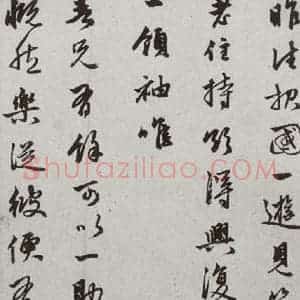 昨往招國一遊見
老住持頗得興復
一領袖唯
吾兄有餘可以一助
慨然樂從彼便有
Shufaziliao.com